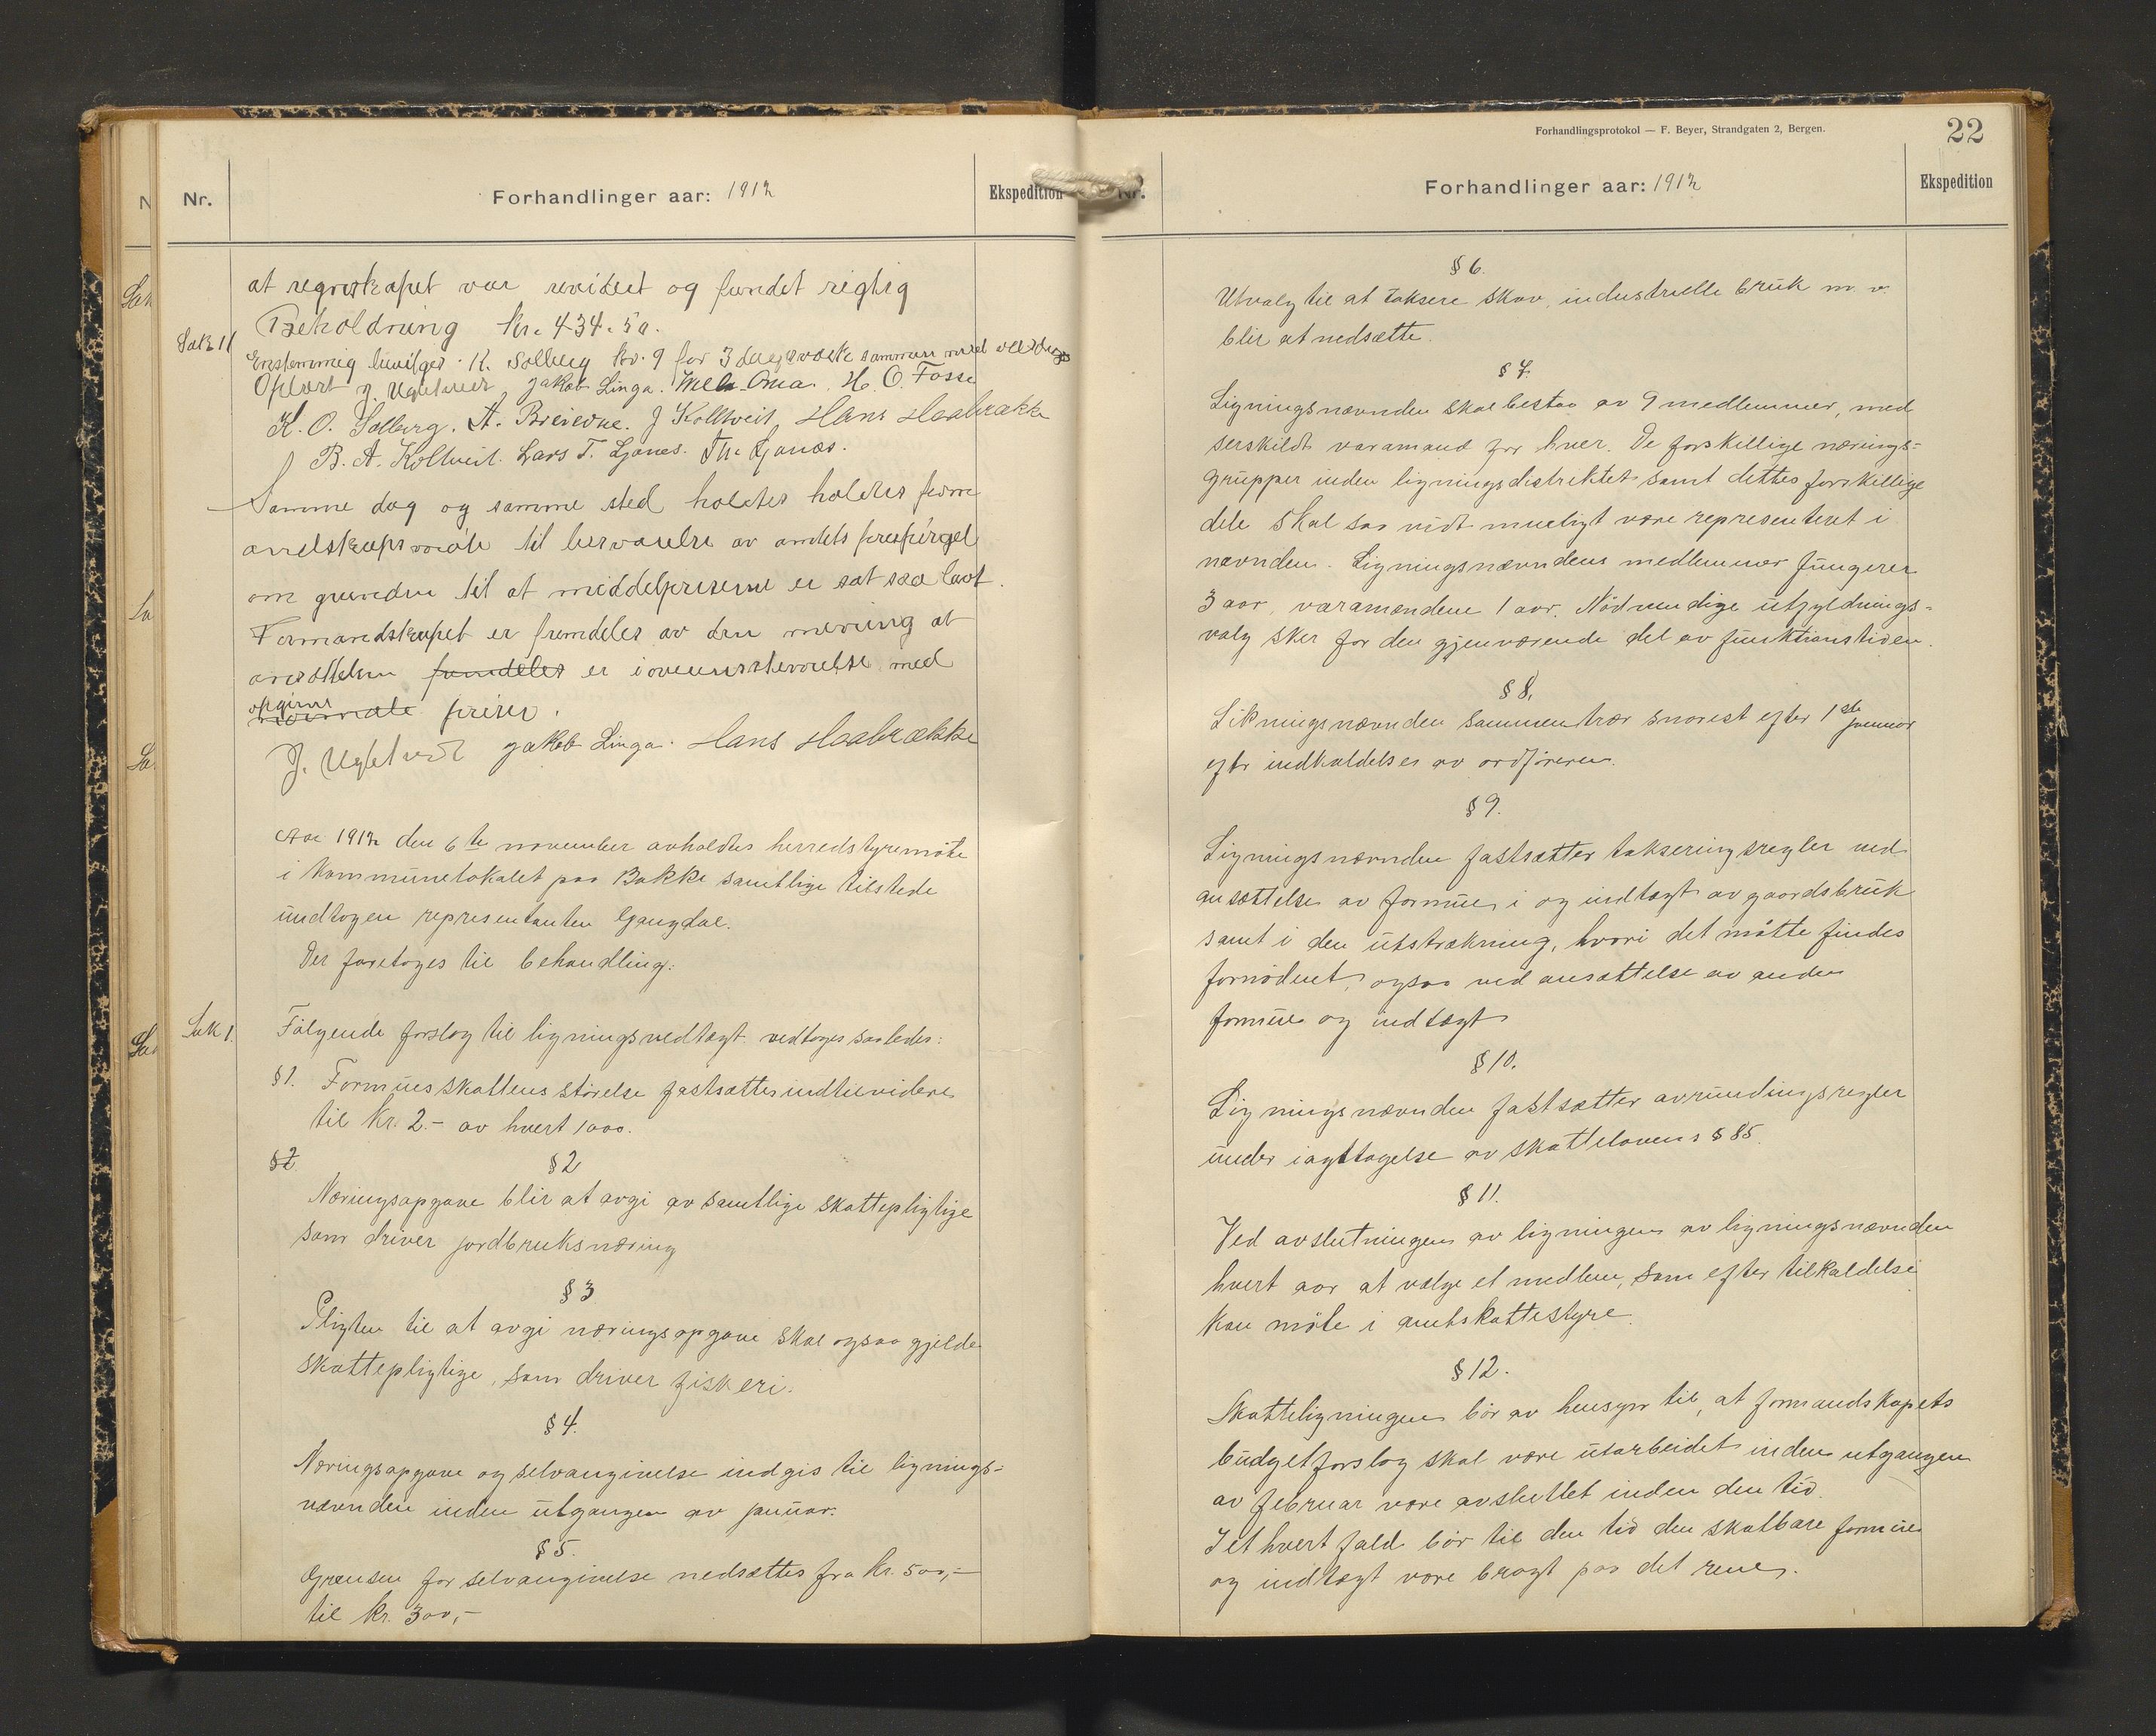 Nr.
Forhandlinger aar: 1912
Ekspedition
at regnskapet var revidert og fundet rigtig
Beholdning kr. 434.50.
Sak 11
Enstemmig bevilges K. Solberg kr. 9 for 3 dagsverk sammen med
Oplæst J. Ugletveit Jakob Linga. H. O. Fosse
K. O. Solberg. A. Breievne. J Kolltveit Hans Haabrække
B. A. Kolltveit. Lars T. Ljones. Th. Ljones.
Samme dag og samme sted holdtes holdtes form
andskapsmöte til besvarelse av amtets forespörgel
om grunden til at middelprisene er sat saa lavt.
Formandskapet er fremdeles av den mening at
ansættelsen fremdeles er i overensstemmelse med
opgivne
normale priser.
J. Ugletveit Jakob Linga. Hans Haabrække
Aar 1912 den 6te november avholdtes herredstyremöte
i kommunelokalet paa Bakke samtlige tilstede
undtagen representanten Gangdal.
Der foretoges til behandling:
Sak 1.
Fölgende forslag til ligningsvedtægt vedtoges saaledes:
§ 1. Formuesskattens störelse fastsættes indtilvidere
til kr. 2.- av hvert 1000.
§ 2 § 2
Næringsopgave blir at avgi av samtlige skattepligtige
som driver jordbruksnæring
§ 3
Pligten til at avgi næringsopgave skal ogsaa gjelde
skattepligtige, som driver fiskeri.
§ 4.
Næringsopgave og selvangivelse indgis til lignings=
nævnden inden utgangen av januar.
§ 5.
Grænsen for selvangivelse nedsættes fra kr. 500,-
til kr. 300,-
Forhandlingsprotokol — F. Beyer, Strandgaten 2, Bergen.
22
Nr.
Forhandlinger aar: 1912
Ekspedition
§ 6.
Utvalg til at taksere skov, industrielle bruk m. v.
blir at nedsætte.
§ 7.
Ligningsnævnden skal bestaa av 9 medlemmer, med
serskildt varamand for hver. De forskellige nærings=
grupper inden ligningsdistriktet samt dettes forskillige
dele skal saa vidt mueligt være representeret i
nævnden. Ligningsnævndens medlemmer fungerer
3 aar, varamændene 1 aar. Nödvendige utfyldnings=
valg sker for den gjenværende del av funktionstiden.
§ 8.
Likningsnævnden sammentrær snarest efter 1ste januar
efter indkaldelse av ordföreren.
§ 9.
Ligningsnævnden fastsætter takseringsregler ved
ansættelse av formue i og indtægt av gaardsbruk
samt i den utstrækning, hvori det måtte findes
fornödent, ogsaa ved ansættelse av anden
formue og indtægt
§ 10.
Ligningsnævnden fastsætter avrundingsregler
under iagttagelse av skattelovens § 85.
§ 11.
Ved avslutningen av ligningen av ligningsnævnden
hvert aar at vælge et medlem, som efter tilkaldelse
kan möte i amtskattestyre.
§ 12.
Skatteligningen bör av hensyn til, at formandskapets
budgetforslag skal være utarbeidet inden utgangen
av februar være avsluttet inden den tid.
I ethvert fald bör til den tid den skatbare formue
og indtægt være bragt paa det rene.